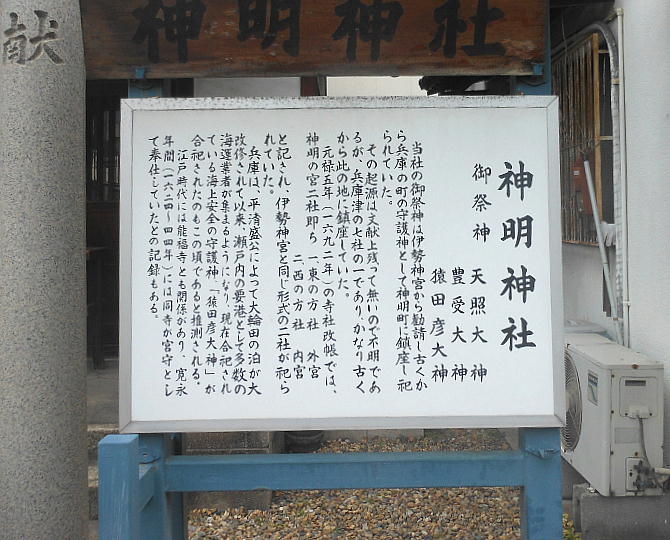 献
神明神社
神明神社
御祭神 天照大神
豊受大神
猿田彦大神
当社の御祭神は伊勢神宮から勧請し古くか
ら兵庫の町の守護神として神明町に鎮座し祀
られていた。
その起源は文献上残って無いので不明であ
るが、兵庫津の七社の一であり、かなり古く
から此の地に鎮座していた。
元禄五年(一六九二年)の寺社改帳では、
神明の宮二社即ち 一、東の方社 外宮
二、西の方社 内宮
と記され、伊勢神宮と同じ形式の二社が祀ら
れていた。
兵庫は、平清盛公によって大輪田の泊が大
改修されて以来、瀬戸内の要港として多数の
海運業者が集まるようになり、現在合祀され
ている海上安全の守護神、「猿田彦大神」が
合祀されたのもこの頃であると推測される。
江戸時代には能福寺とも関係があり、寛永
年間(一六二四〜四四年)には同寺が宮守とし
て奉仕していたとの記録もある。